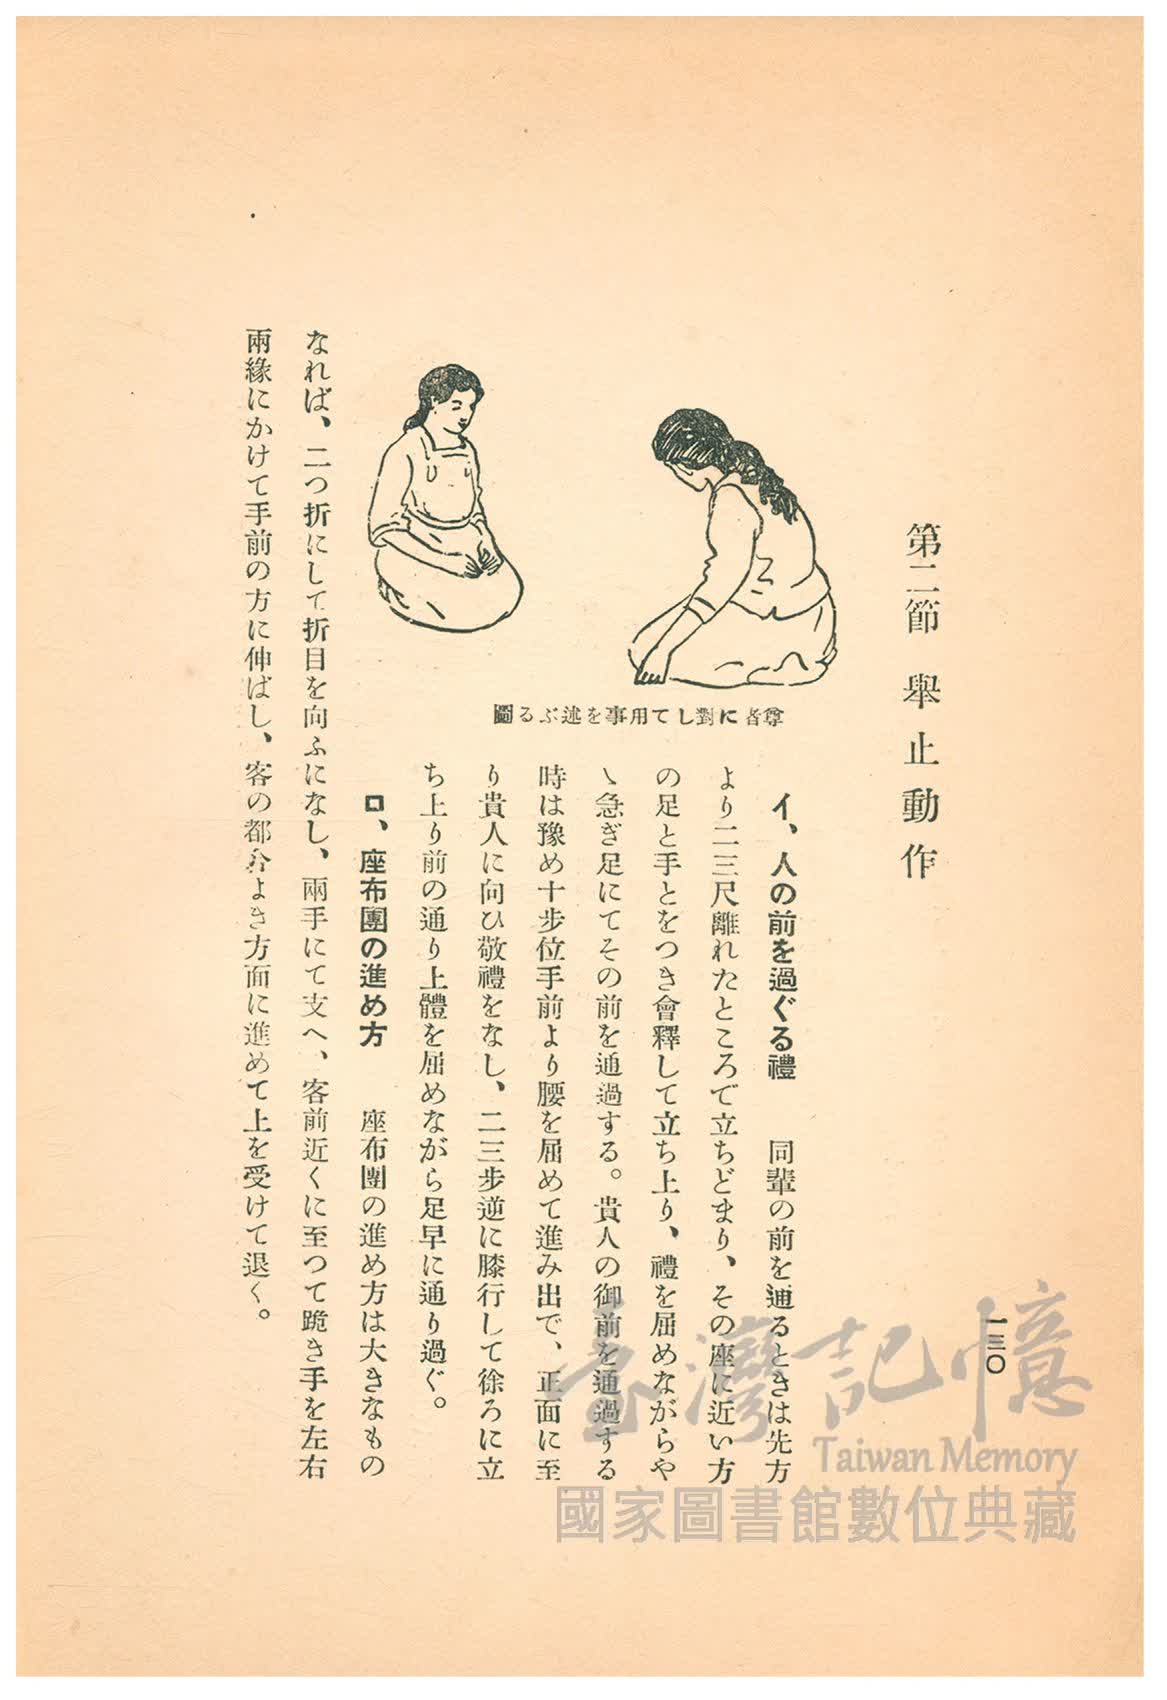 一三〇
第二節 舉止動作
尊者に對して用事を述ぶる圖
イ、人の前を過ぐる禮 同輩の前を通るときは先方
より二三尺離れたところで立ちどまり、その座に近い方
の足と手とをつき會釋して立ち上り、禮を屈めながらや
ゝ急ぎ足にてその前を通過する。貴人の御前を通過する
時は豫め十步位手前より腰を屈めて進み出で、正面に至
り貴人に向ひ敬禮をなし、二三步逆に膝行して徐ろに立
ち上り前の通り上體を屈めながら足早に通り過ぐ。
ロ、座布團の進め方 座布團の進め方は大きなもの
なれば、二つ折にして折目を向ふになし、兩手にて支へ、客前近くに至つて跪き手を左右
兩緣にかけて手前の方に伸ばし、客の都合よき方面に進めて上を受けて退く。
臺灣記憶
Taiwan Memory
國家圖書館數位典藏